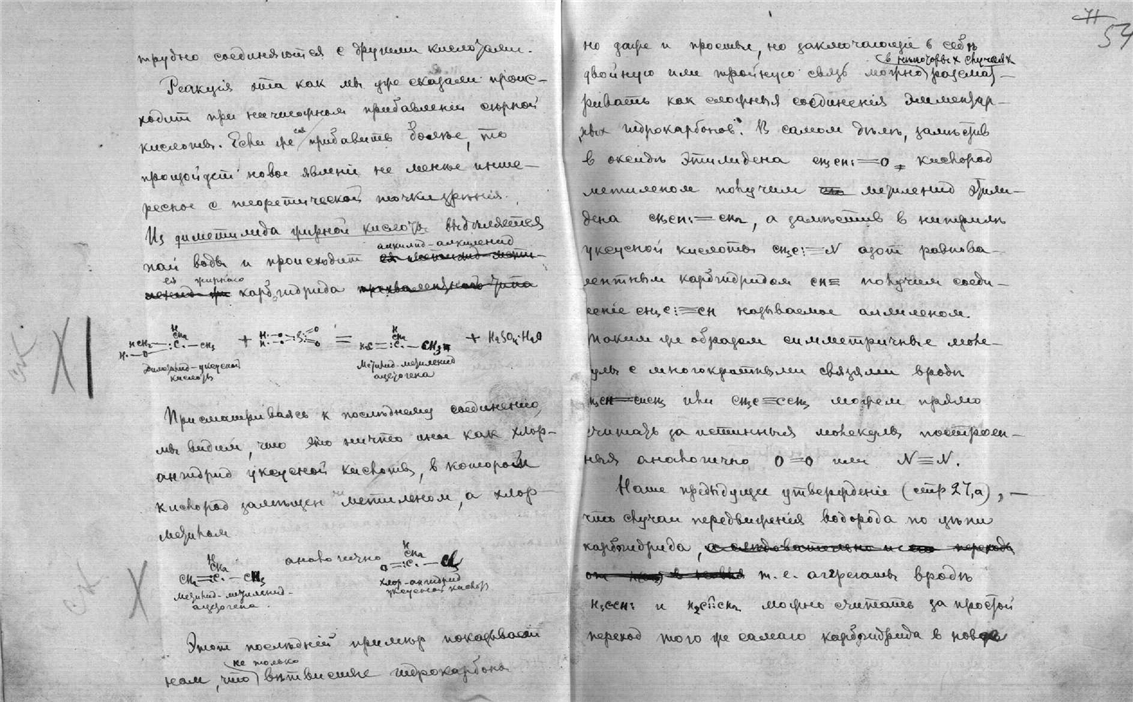 трудно соединяются с другими кислотами.
Реакція эта как мы уже сказали проис-
ходит при нечисторном прибавленіи сѣрной
кислоты. Если же ея прибавить больше, то
произойдет новое явленіе не менѣе инте-
ресное с теоретической точки зрѣнія.
Из диметилида жирной кислоты выдѣляется
пай воды и происходит алкилид-алкиленид
его жирного карбгидрида
H CH2
HCH2 :C: CH3 + H. O = H2C :C. CH3 + H2SO4.H2O
уксусной
кислоты
Метилид-метиленид
ацетогена
Присматриваясь к послѣднему соединенію,
мы видим, что это ничто иное как хлор-
ангидрид уксусной кислоты, в которой
кислород замѣщен метиленом, а хлор-
метилом
H CH2
CH2=C. — CH3 аналогично O=C. — Cl
Метилид-метиленид-
ацетогена.
Хлор-ангидрид
уксусной кислоты
Этот послѣдній пример показывает
нам, что не только вѣтвистые гидрокарбоны
54
но даже и простые, но заключающіе в себѣ
двойную или тройную связь можно в нѣкоторых случаях разсмат-
ривать как сложныя соединенія элементар-
ных гидрокарбонов. В самом дѣлѣ, замѣстив
в оксидѣ этилидена CH3CH:=O, кислород
метиленом получим метиленид этили-
дена CH3CH:=CH2, а замѣстив в нитрилѣ
уксусной кислоты CH3C:≡N азот равнова-
лентным карбгидридом CH≡ получим соеди-
неніе CH3C:≡CH называемое алиленом.
Таким же образом симметричные моле-
кулы с многократными связями вродѣ
H3CH=CHCH3 или CH3C≡CCH3 можем прямо
считать за истинныя молекулы построен-
ныя аналогично O=O или N≡N.
Наше предыдущее утвержденіе (стр 27,а), —
что случаи передвиженія водорода по цѣпи
карбогидрида, т.е. агрегаты вродѣ
H3CCH: и H2C::CH2 можно считать за простой
переход того же самаго карбгидрида в новое